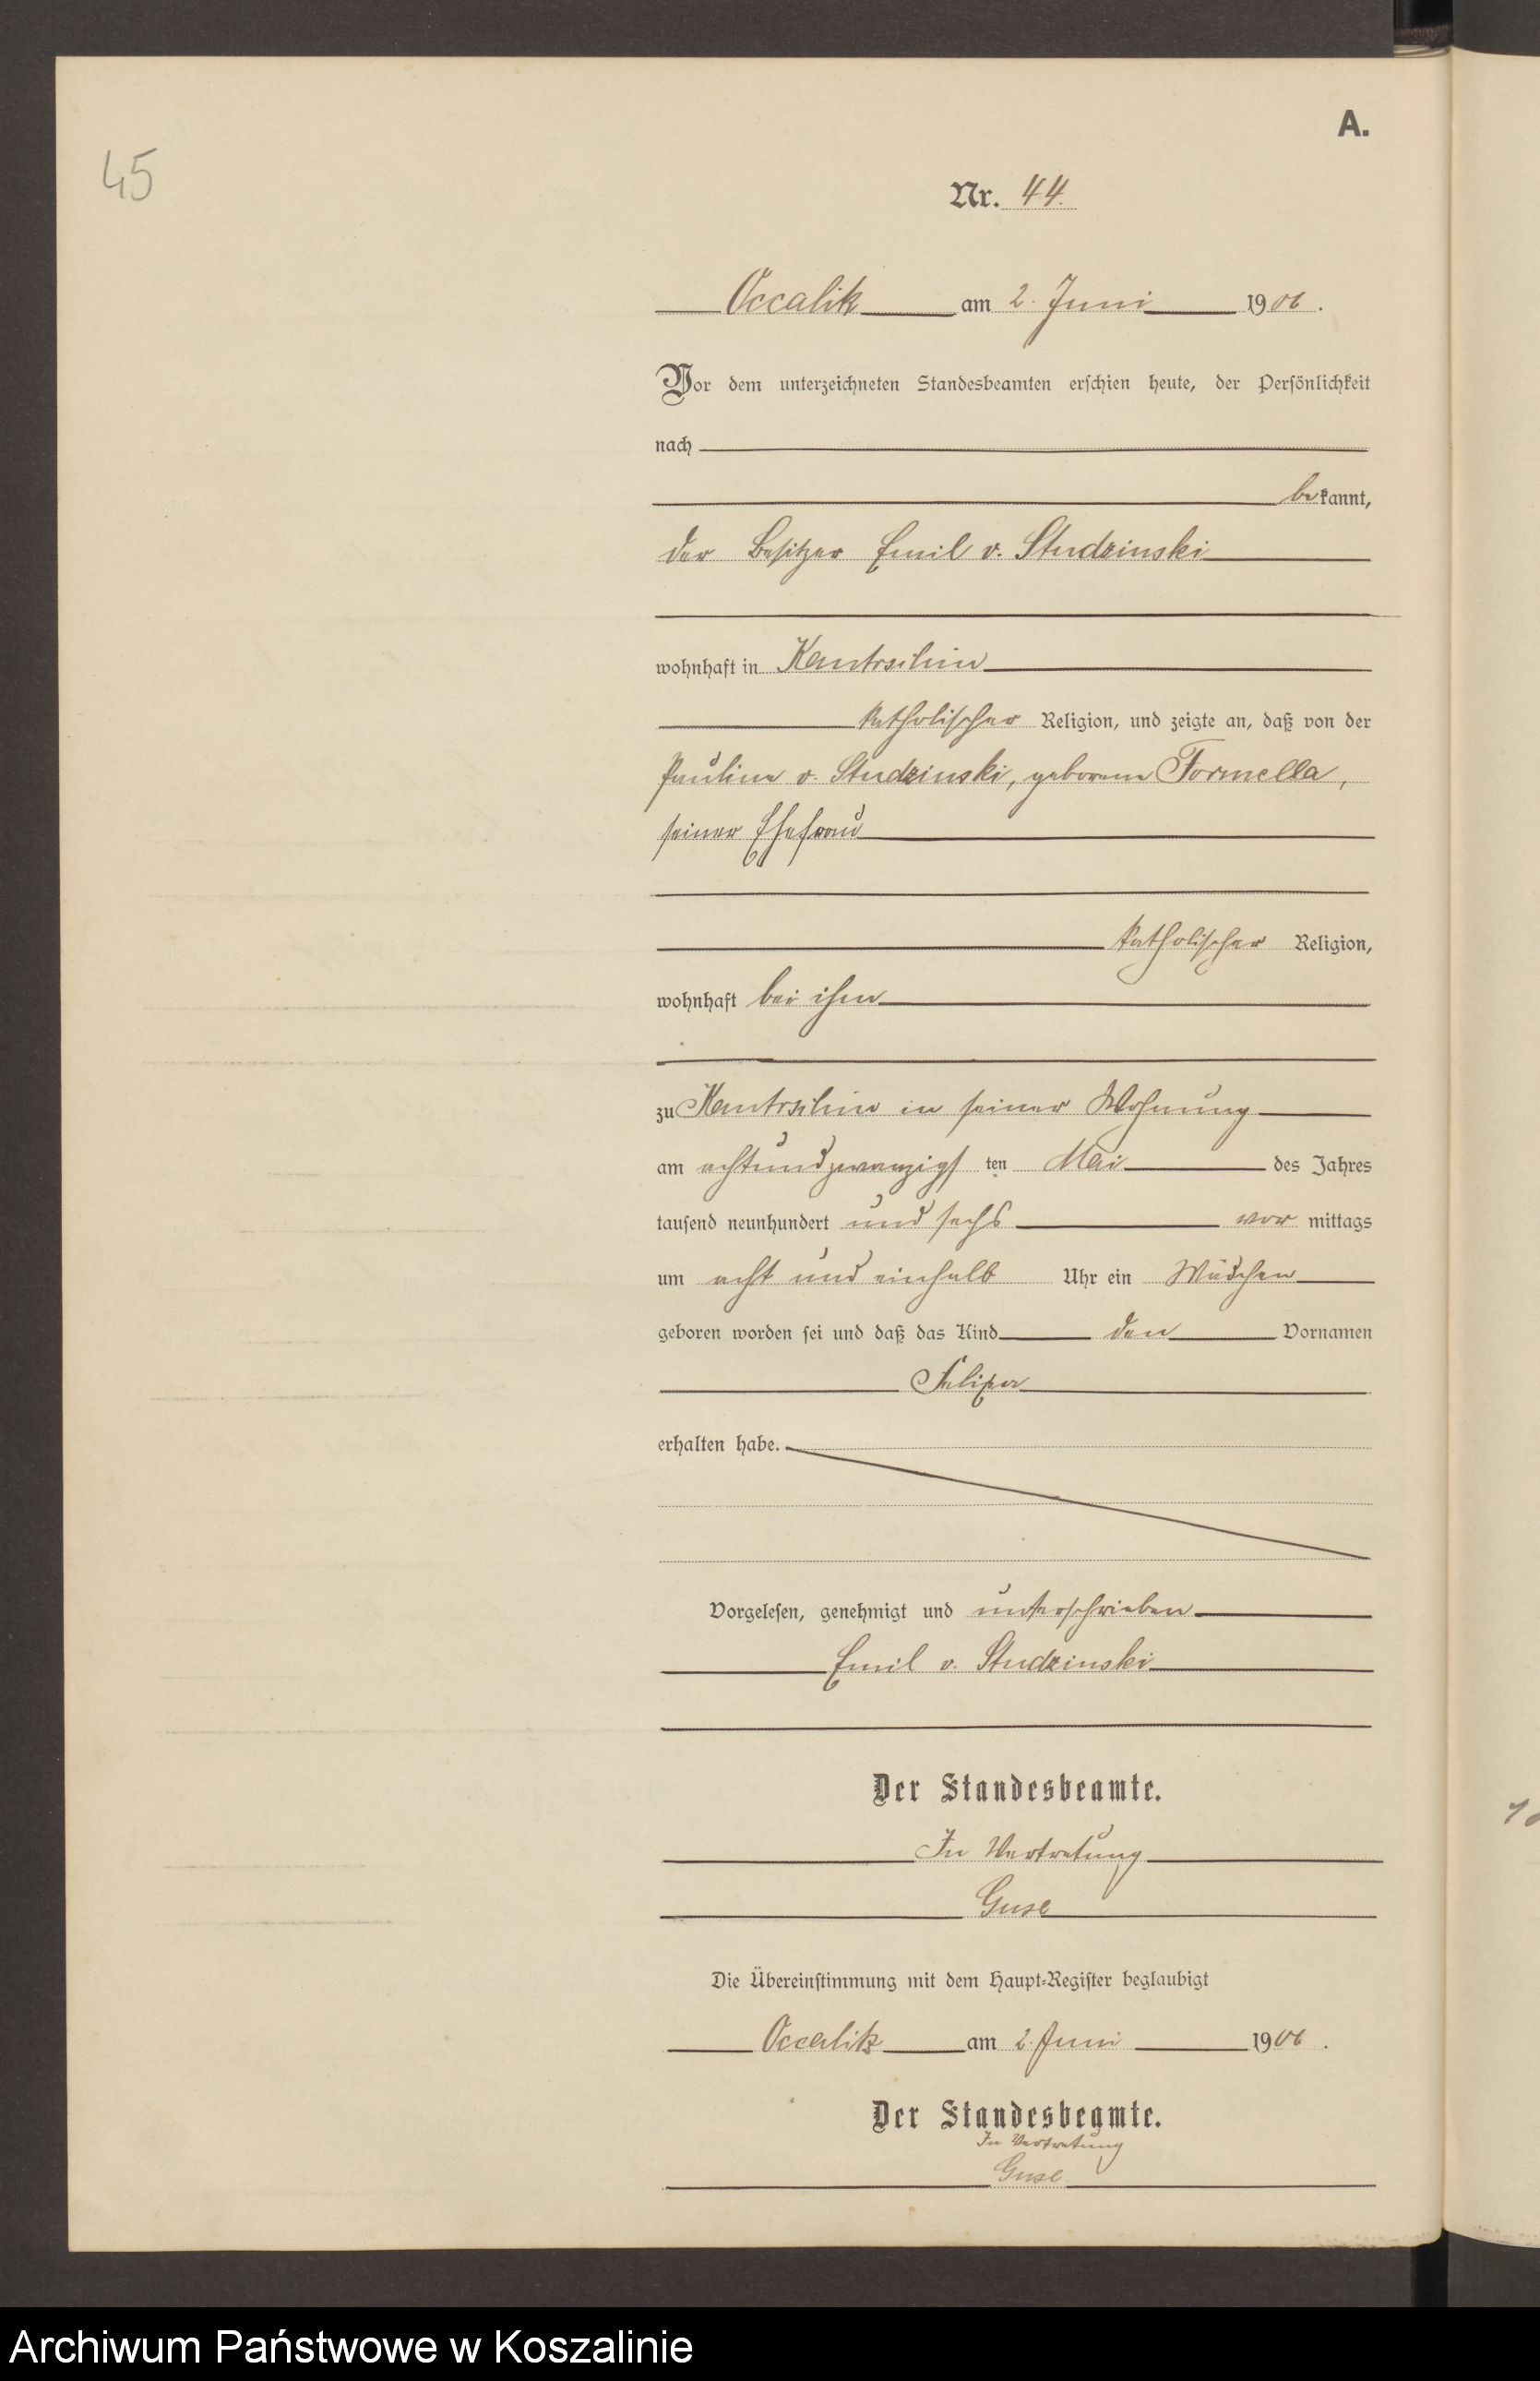 45
A.
Nr. 44.
Occalitz am 2. Juni 1906.
Vor dem unterzeichneten Standesbeamten erschien heute, der Persönlichkeit
nach
bekannt,
der Besitzer Emil v. Studzinski
wohnhaft in Kantrschin
katholischer Religion, und zeigte an, daß von der
Pauline v. Studzinski, geborene Formella,
seiner Ehefrau
katholischer Religion,
wohnhaft bei ihm
zu Kantrschin in seiner Wohnung
am achtundzwanzigsten Mai des Jahres
tausend neunhundert und sechs vor mittags
um acht und einhalb Uhr ein Mädchen
geboren worden sei und daß das Kind den Vornamen
erhalten habe.
Vorgelesen, genehmigt und unterschrieben
Emil v. Studzinski
Der Standesbeamte.
In Vertretung
Guse
Die Übereinstimmung mit dem Haupt-Register beglaubigt
Occalitz am 2. Juni 1906.
Der Standesbeamte.
In Vertretung
Guse
Archiwum Państwowe w Koszalinie